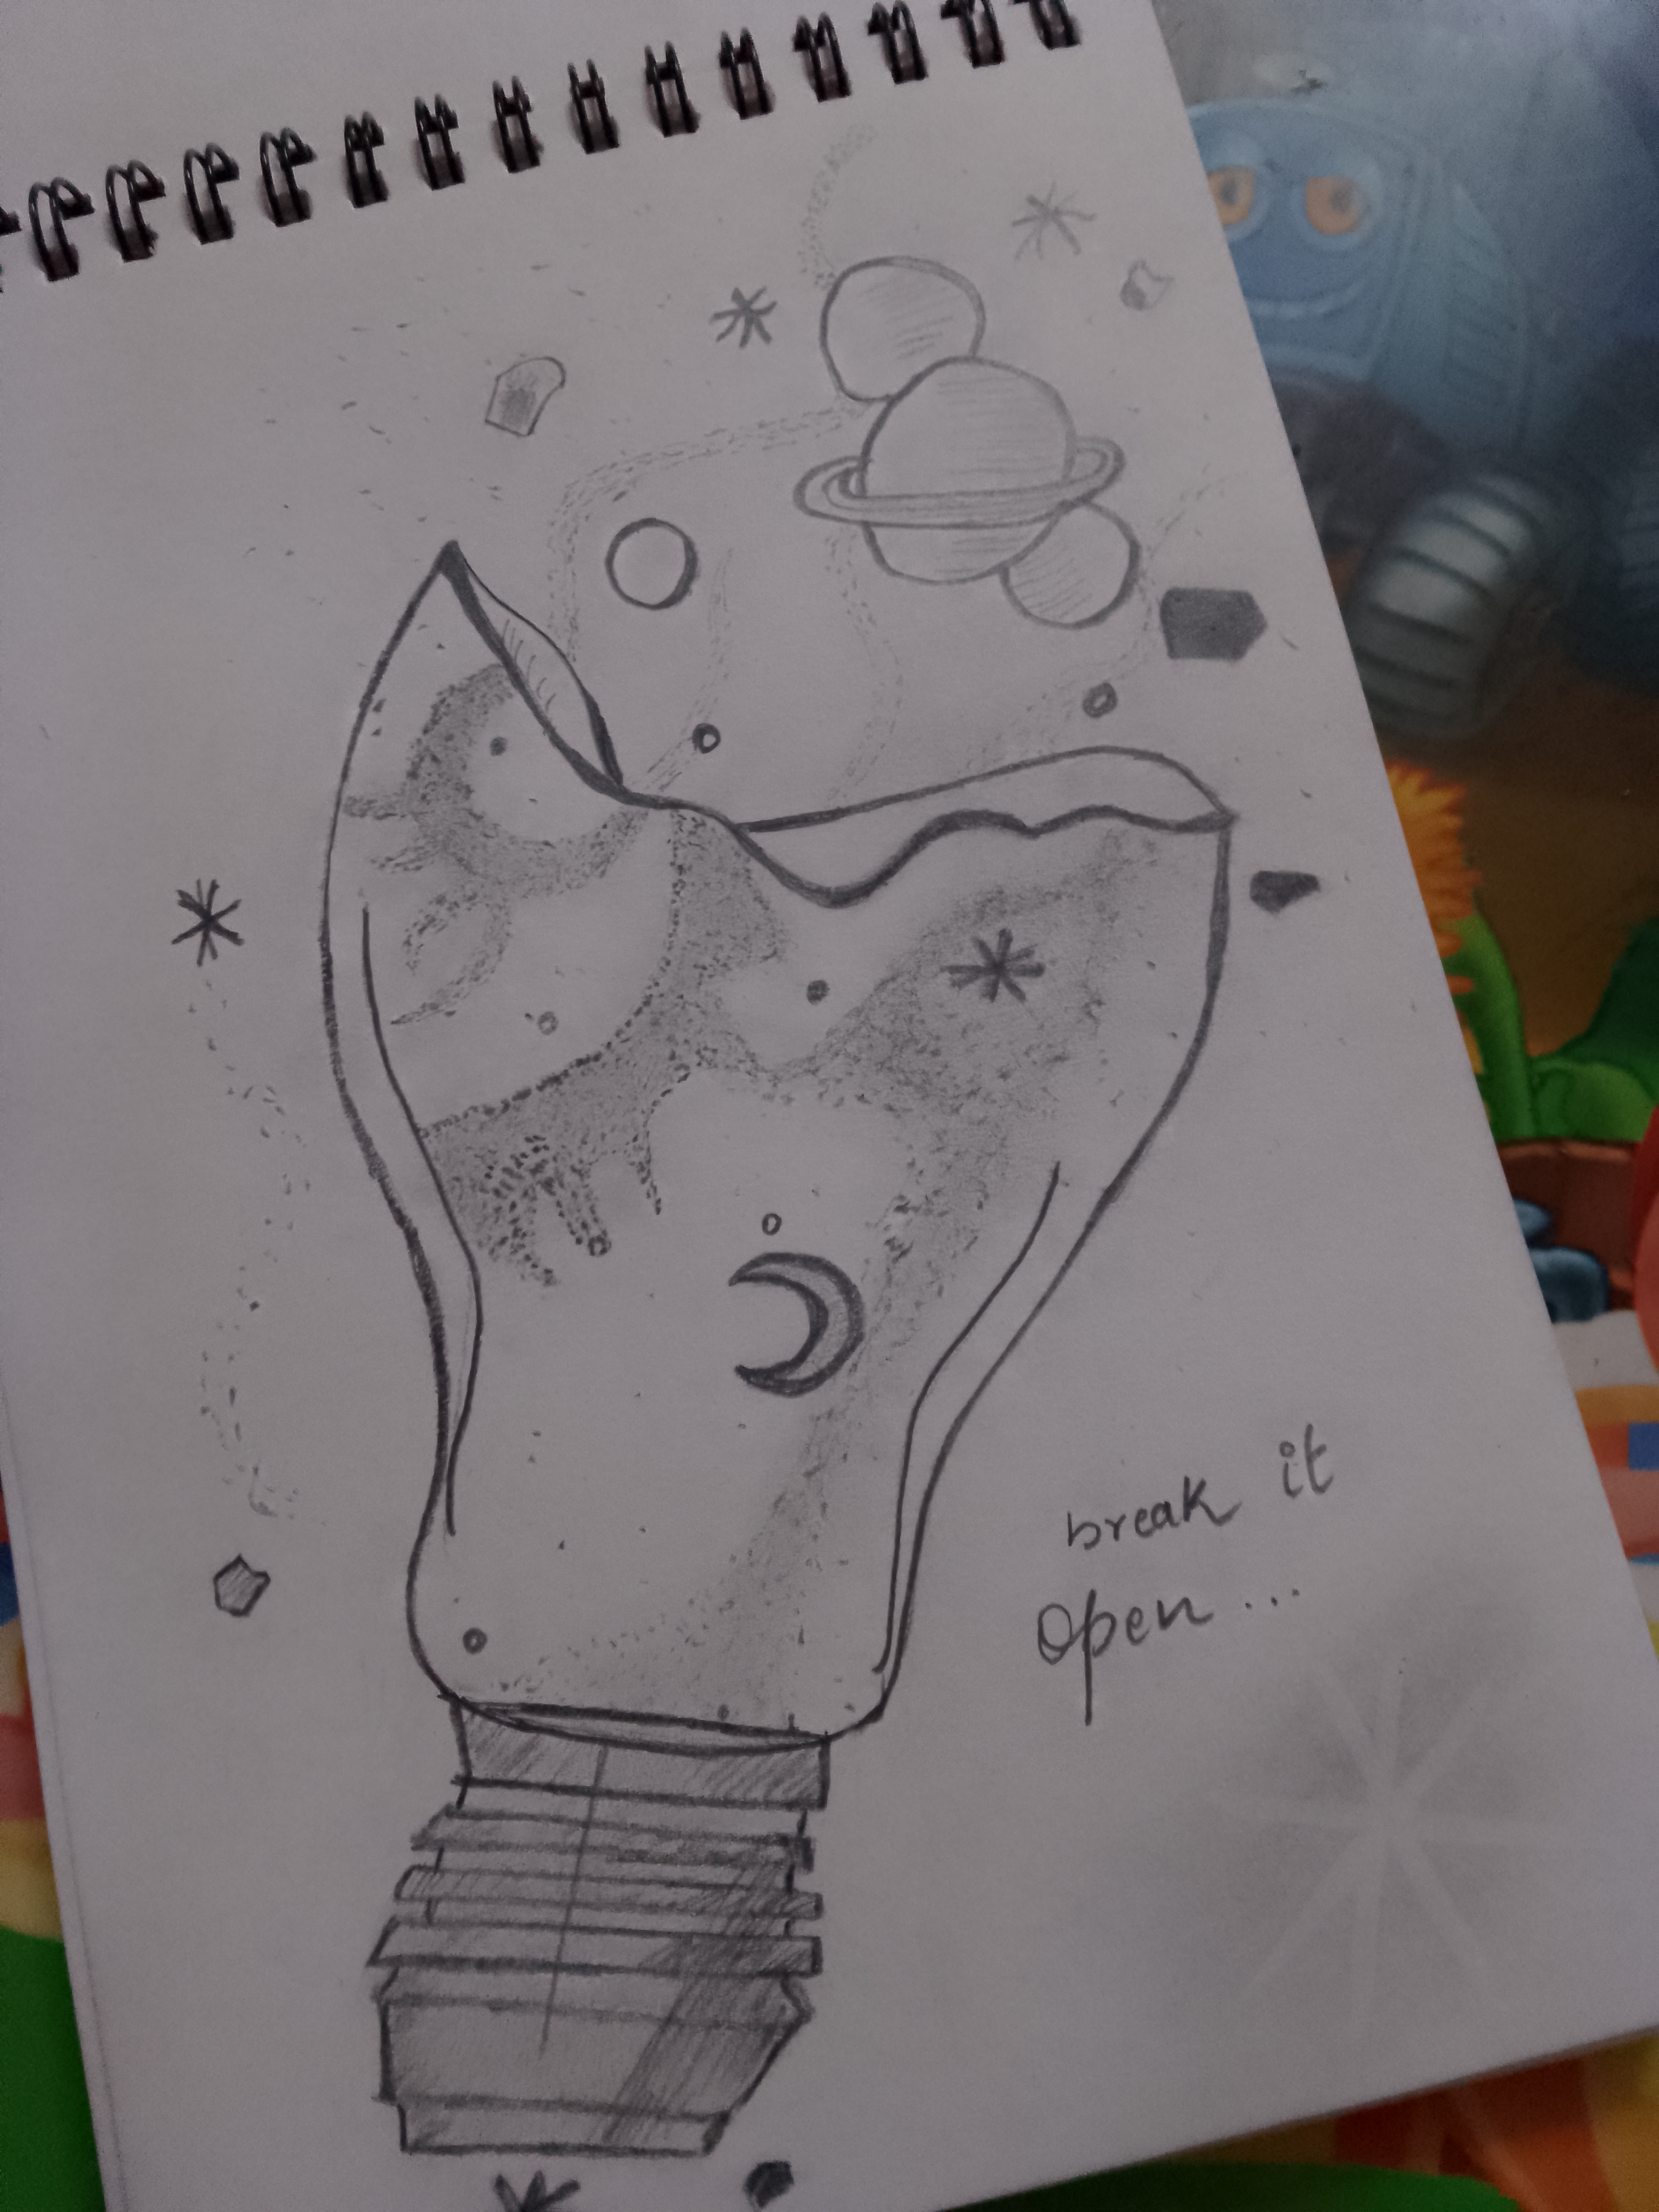 break it
Open...